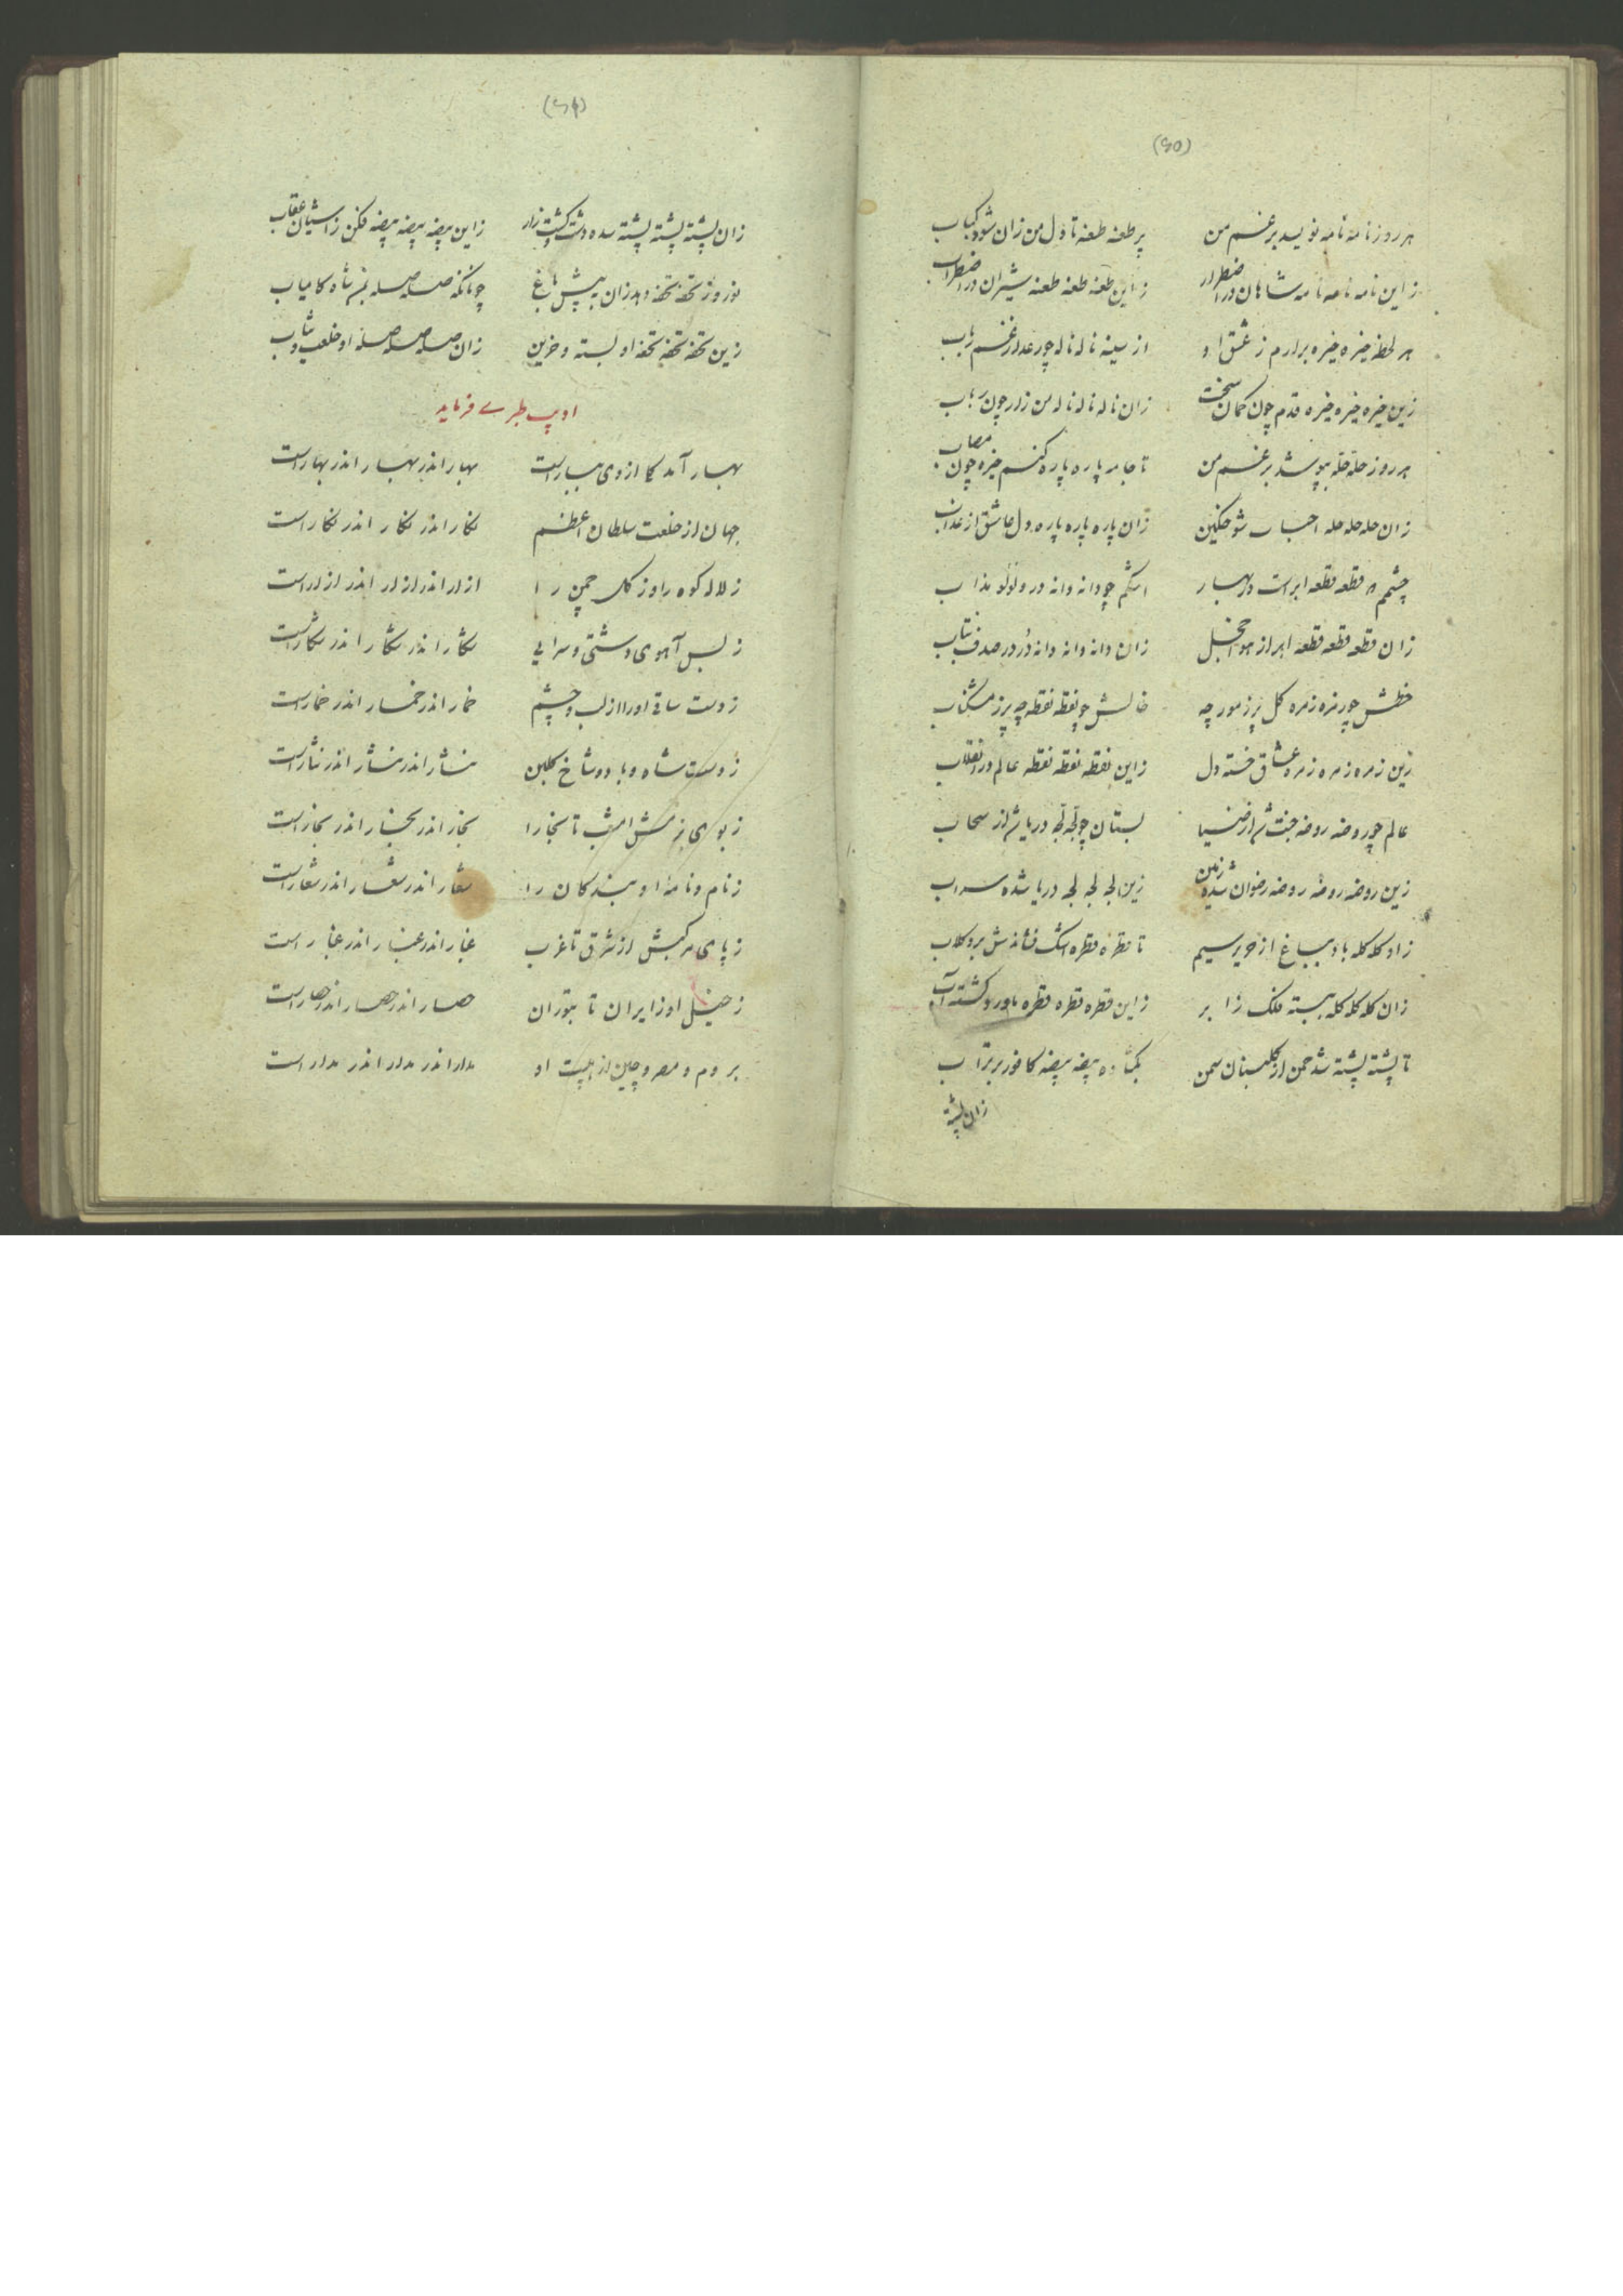 (۶۵)
هر روز نامه نامه نویسد بر غم من پر طعنه طعنه تا دل من زان شود کباب
زاین نامه نامه نامه شاهان در اضطرار زاین طعنه طعنه طعنه شیران در اضطراب
هر لحظه خیره خیره برآرم ز عشق او از سینه ناله ناله چو رعد از غم رباب
زین خیره خیره خیره قدم چون کمان سخت زان ناله ناله ناله من زار چون رباب
هر روز حله حله بپوشد بر غم من تا جامه پاره پاره کنم خیره چون مصاب
زان حله حله حله احباب شو خکین زان پاره پاره پاره دل عاشق از عذاب
چشمم قطعه قطعه ابر است در بهار اشکم چو دانه دانه در و لؤلؤ مذاب
زان قطعه قطعه قطعه ابر از هوا خجل زان دانه دانه دانه در در صدف بتاب
خطش چو زمره زمره گل پر ز مورچه خالش چو نقطه نقطه چه پر ز مشکناب
زین زمره زمره زمره عشاق خسته دل زاین نقطه نقطه نقطه عالم در انقلاب
عالم چو روضه روضه جنت شد از ضیا بستان چو لجه لجه دریا شد از سحاب
زین روضه روضه روضه رضوان شده زمین زین لجه لجه لجه دریا شده سراب
زد کله کله باد بباغ از حریر سیم تا قطره قطره اشک فشاندش بر و گلاب
زان کله کله کله ببسته فلک ز ابر زاین قطره قطره قطره بر او در گشته آب
تا پشته پشته شد چمن از گلستان سمن بگشاده بیضه بیضه کافور بر تراب
زان پشته
(۶۶)
زان پشته پشته پشته شده دشت کشت زار زاین بیضه بیضه بیضه فکن ز آشیان عقاب
نوروز تحفه تحفه دهد زان به پیش باغ چونانکه صله صله بمن شاه کامیاب
زین تحفه تحفه تحفه او بسته و حزین زان صله صله صله او خلعت و ثیاب
ادیب طبری فرماید
بهار آمد کا از وی بهار است بهار اندر بهار اندر بهار است
جهان از خلعت سلطان اعظم نگار اندر نگار اندر نگار است
ز لاله کوه را وز گل چمن را ازار اندر ازار اندر ازار است
ز بس آهوی دشتی و سرایی شکار اندر شکار اندر شکار است
ز دست ساقی او را از لب و چشم خمار اندر خمار اندر خمار است
ز دست شاه و باد و شاخ گلبن نثار اندر نثار اندر نثار است
ز بوی بزمش امشب تا بخارا بخار اندر بخار اندر بخار است
ز نام و نامهٔ او بندگان را شعار اندر شعار اندر شعار است
ز پای مرکبش از شرق تا غرب غبار اندر غبار اندر غبار است
ز خیل او ز ایران تا بتوران حصار اندر حصار اندر حصار است
بروم و مصر و چین از هیبت او مدار اندر مدار اندر مدار است